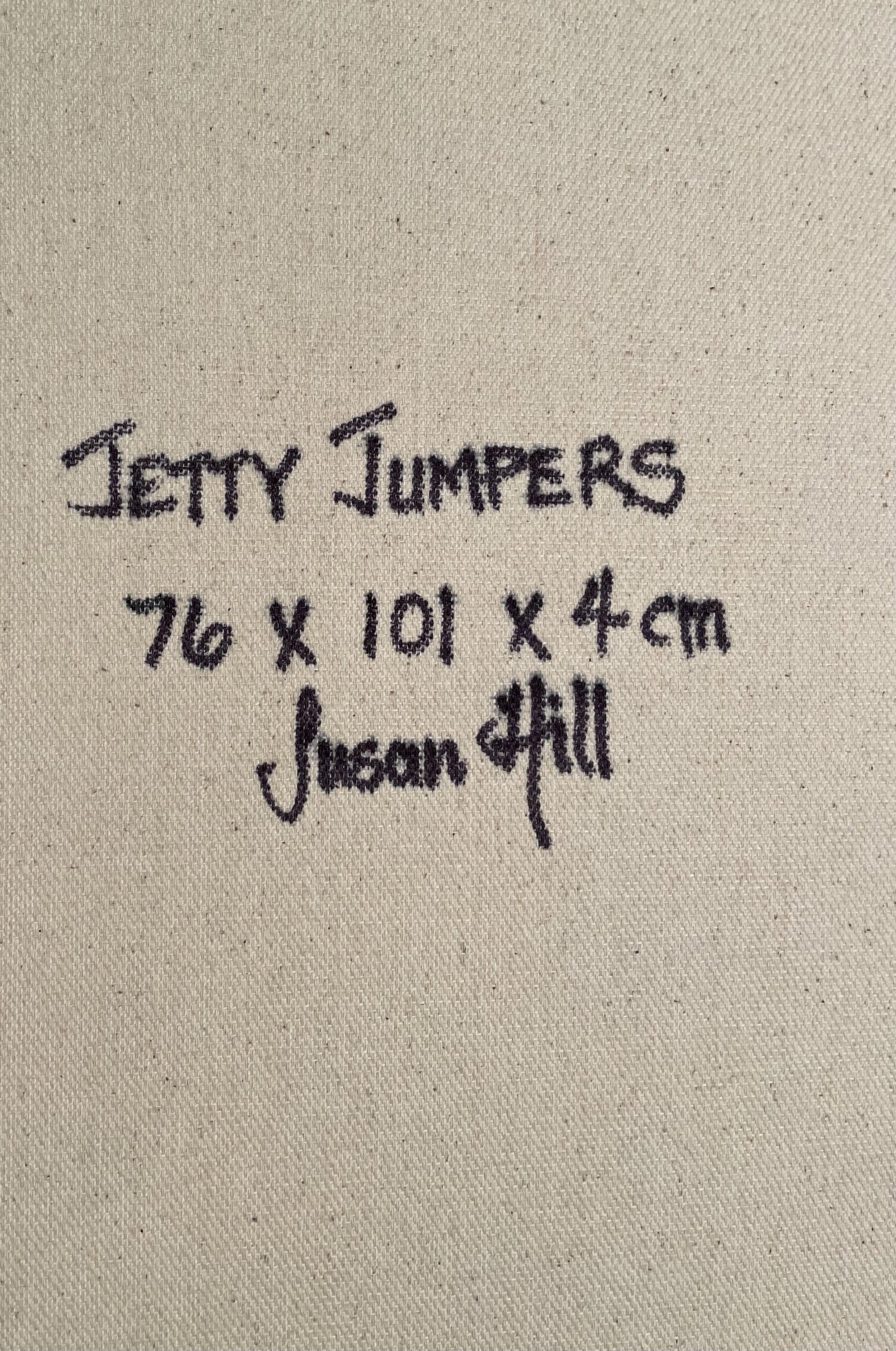 JETTY JUMPERS
76 x 101 x 4 cm
Susan Hill